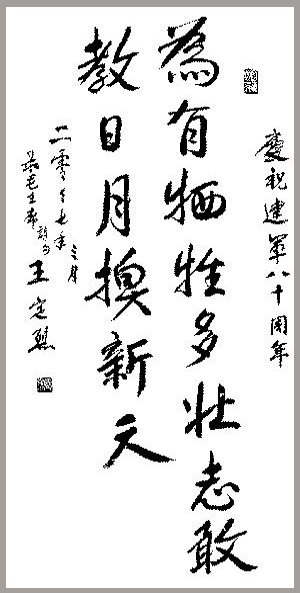 慶祝建軍八十周年
為有牺牲多壮志敢
教日月換新天
二零々七年三月
录毛主席詩句
王定烈